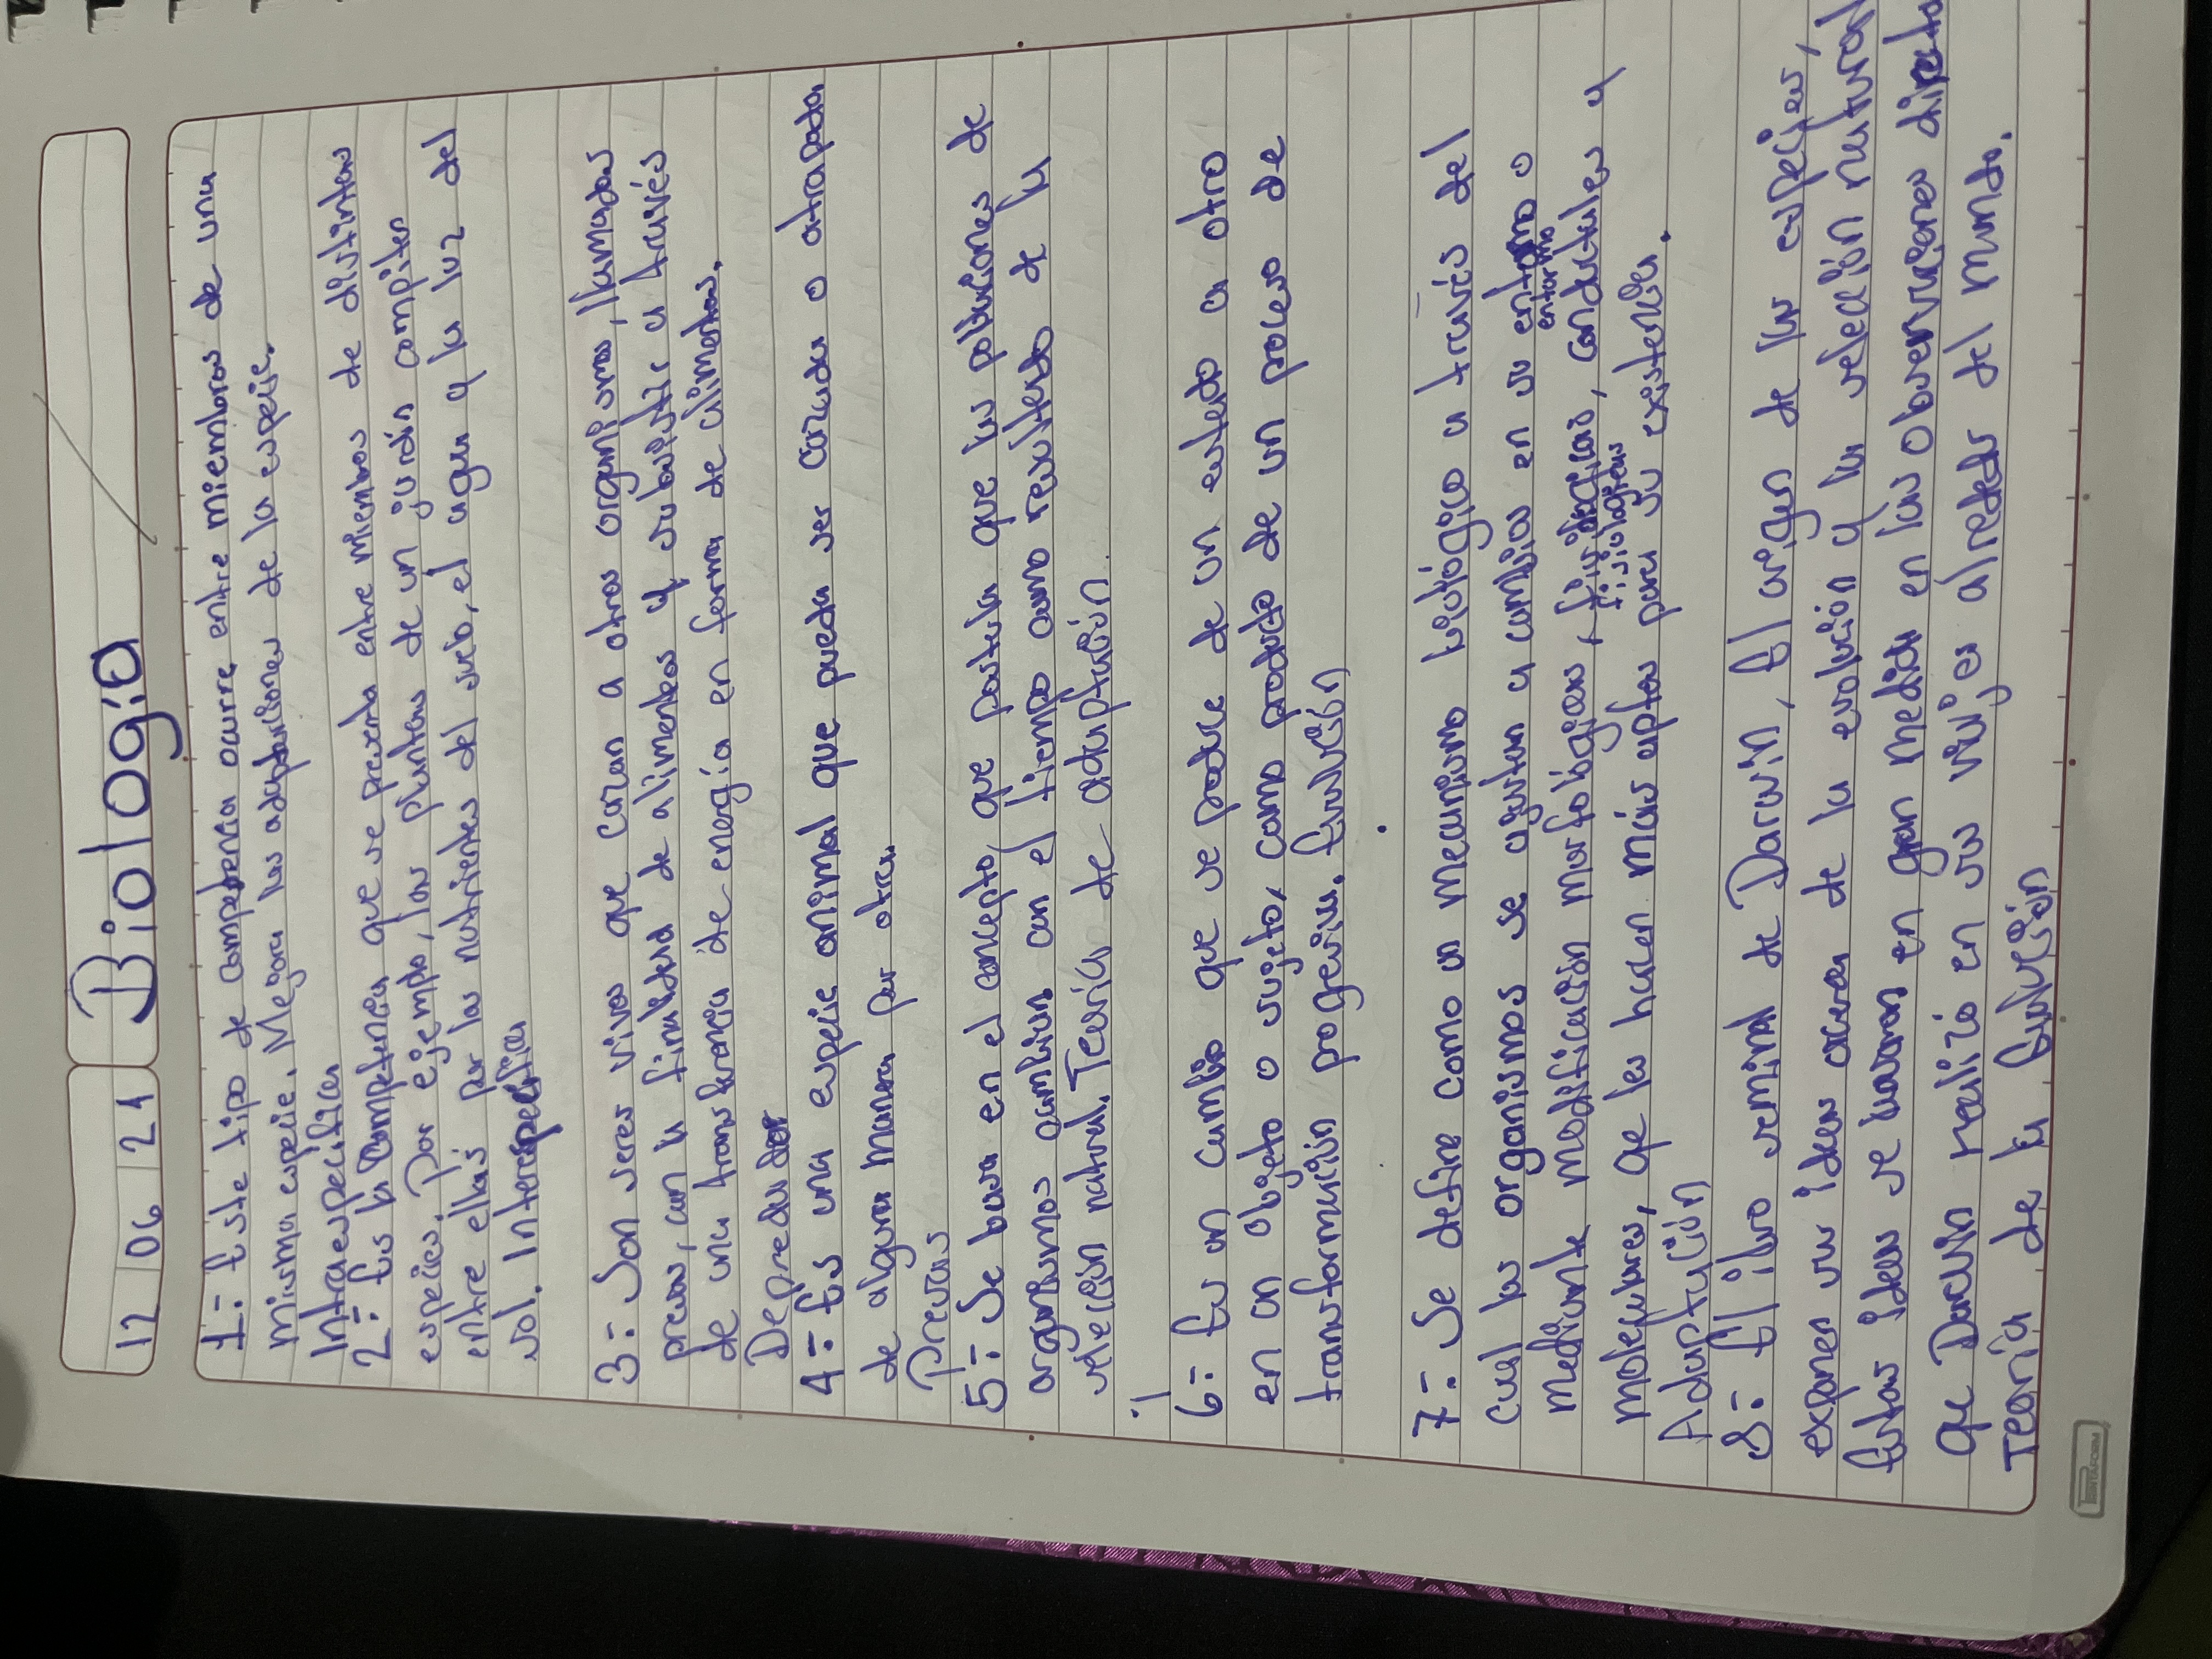 12 06 21 Biología
1= Este tipo de competencia ocurre entre miembros de una
misma especie. Mejora las adaptaciones de la especie.
Intraespecifica
2= Es la competencia que se presenta entre miembros de distintas
especies. Por ejemplo, las plantas de un jardín compiten
entre ellas por los nutrientes del suelo, el agua y la luz del
sol. Interespecifica
3= Son seres vivos que cazan a otros organismos, llamados
presas, con la finalidad de alimentos y subsistir a través
de una transferencia de energía en forma de alimentos.
Depredador
4= Es una especie animal que puede ser cazada o atrapada
de alguna manera por otra.
Presas
5= Se basa en el concepto que postula que las poblaciones de
organismos cambian con el tiempo como resultado de la
selección natural. Teoría de adaptación
6= Es un cambio que se produce de un estado a otro
en un objeto o sujeto, como producto de un proceso de
transformación progresiva. Evolución
7= Se define como un mecanismo biológico a través del
cual los organismos se ajustan a cambios en su entorno o
entorno
mediante modificación morfológicas, conductules y
fisiológicas
moleculares, que les hacen más aptos para su existencia.
Adaptación
8= El libro seminal de Darwin, El origen de las especies,
expones sus ideas acerca de la evolución y la selección natural
Estas ideas se basaron en gran medida en las observaciones directas
que Darwin realizó en su viaje alrededor del mundo.
Teoría de la Evolución
PENTAFORM